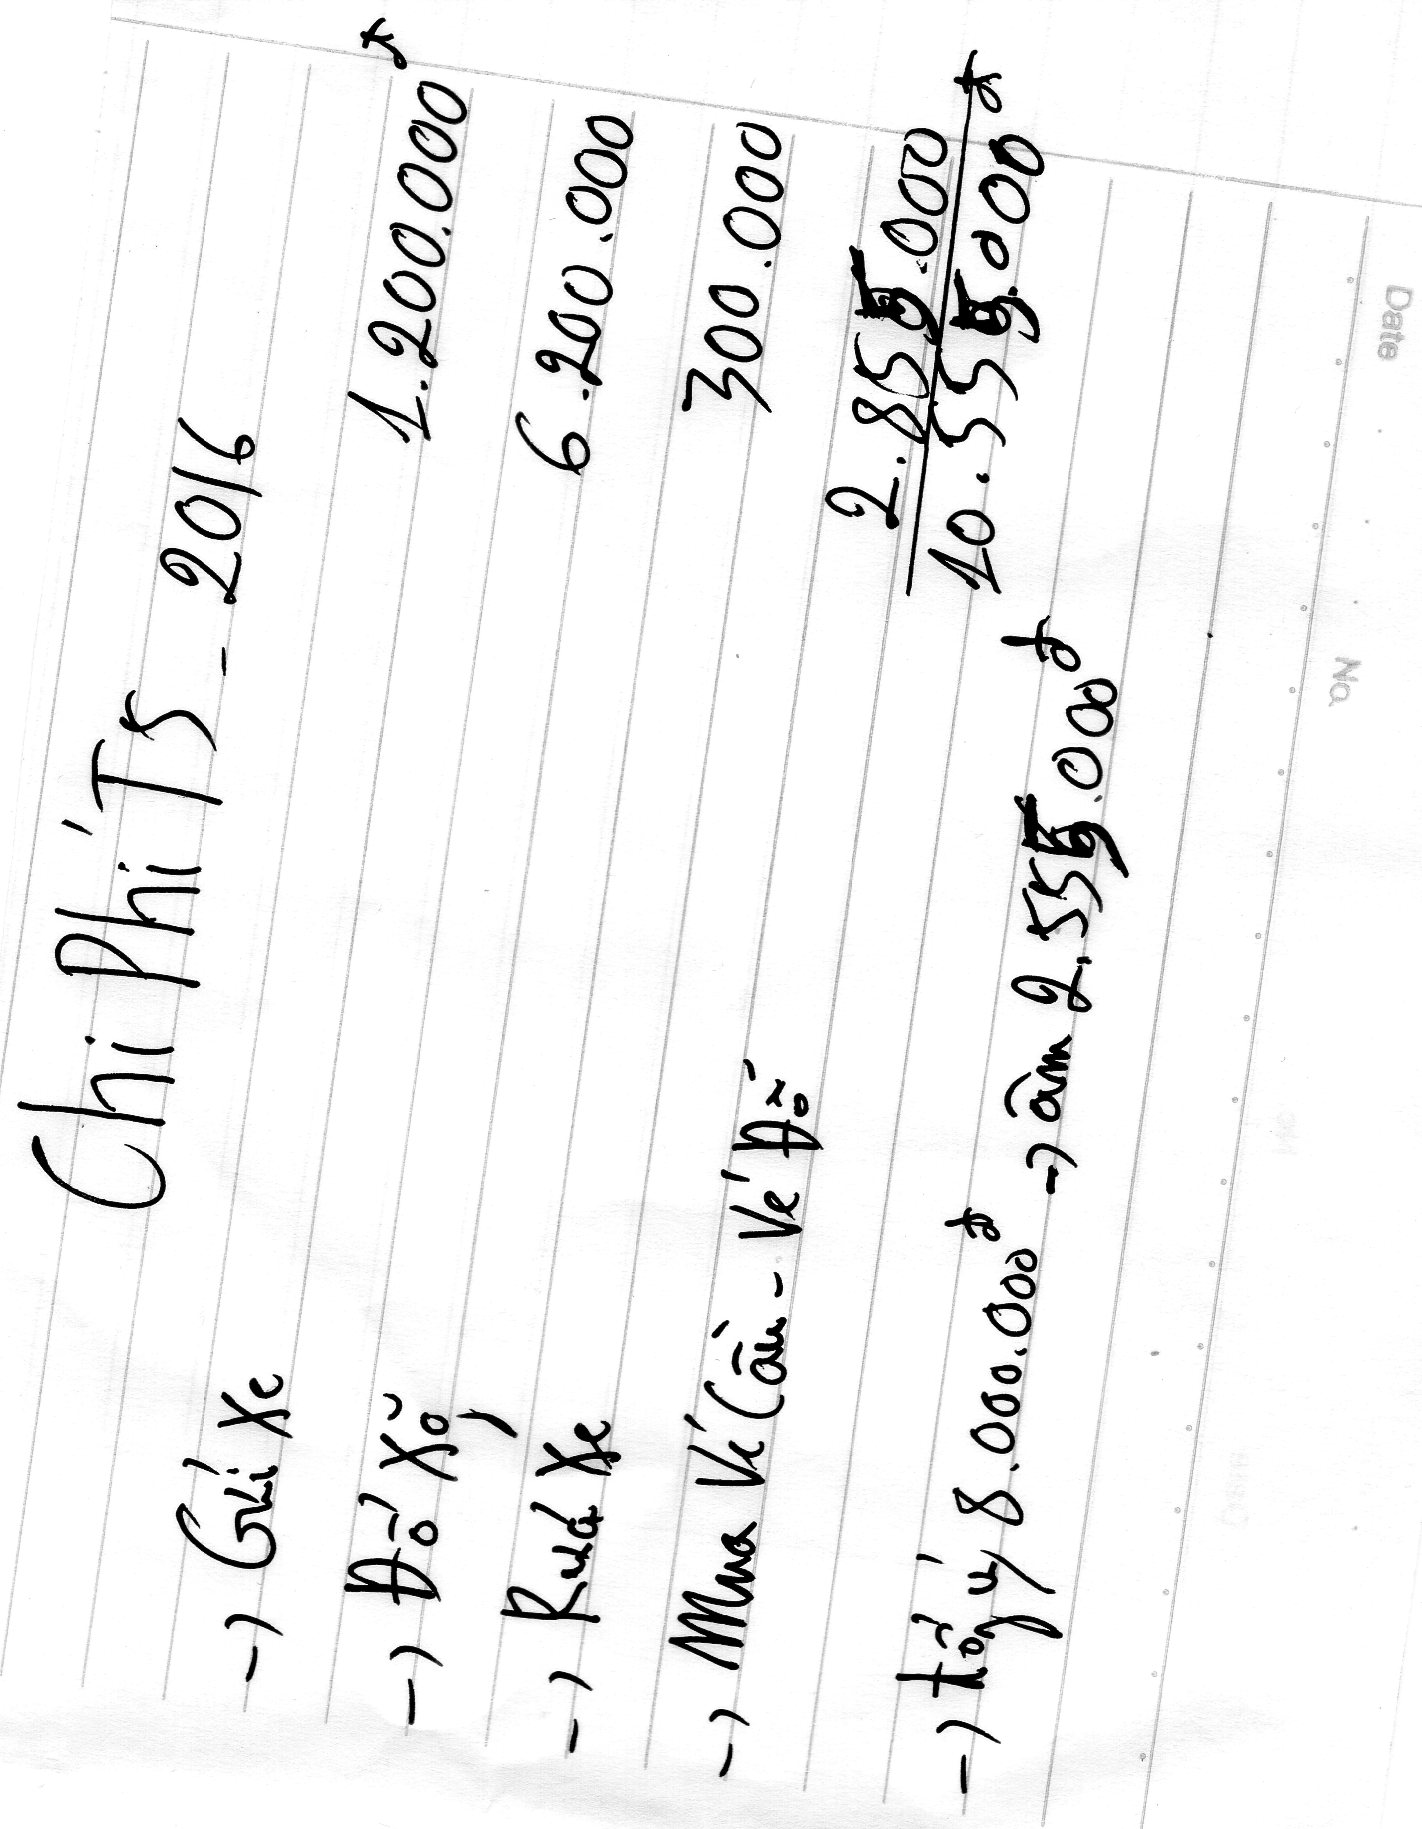 Date No.
Chi Phí T5 - 2016
→ Gửi Xe 1.200.000đ
→ Đổ Xô 6.200.000
→ Rửa Xe 300.000
→ Mua Vé Cầu - Vé Đỗ 2.855.000
10.555.000đ
→ tổng ứ 8.000.000đ → âm 2.555.000đ